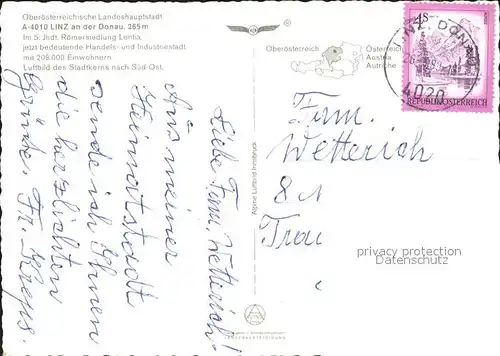 Oberösterreichische Landeshauptstadt
A-4010 LINZ an der Donau, 265 m
Im 5. Jhdt. Römersiedlung Lentia,
jetzt bedeutende Handels- und Industriestadt
mit 208.000 Einwohnern
Luftbild des Stadtkerns nach Süd-Ost.
Liebe Fam. Wetterich!
Aus meiner
Heimatstadt
sende ich Ihnen
die herzlichsten
Grüße. Fr. Kreps.
Alpine Luftbild Innsbruck
Oberösterreich
Österreich
Austria
Autriche
4S
REPUBLIK ÖSTERREICH
LINZ, DONAU
4020
Fam.
Wetterich
Trau
privacy protection
Datenschutz